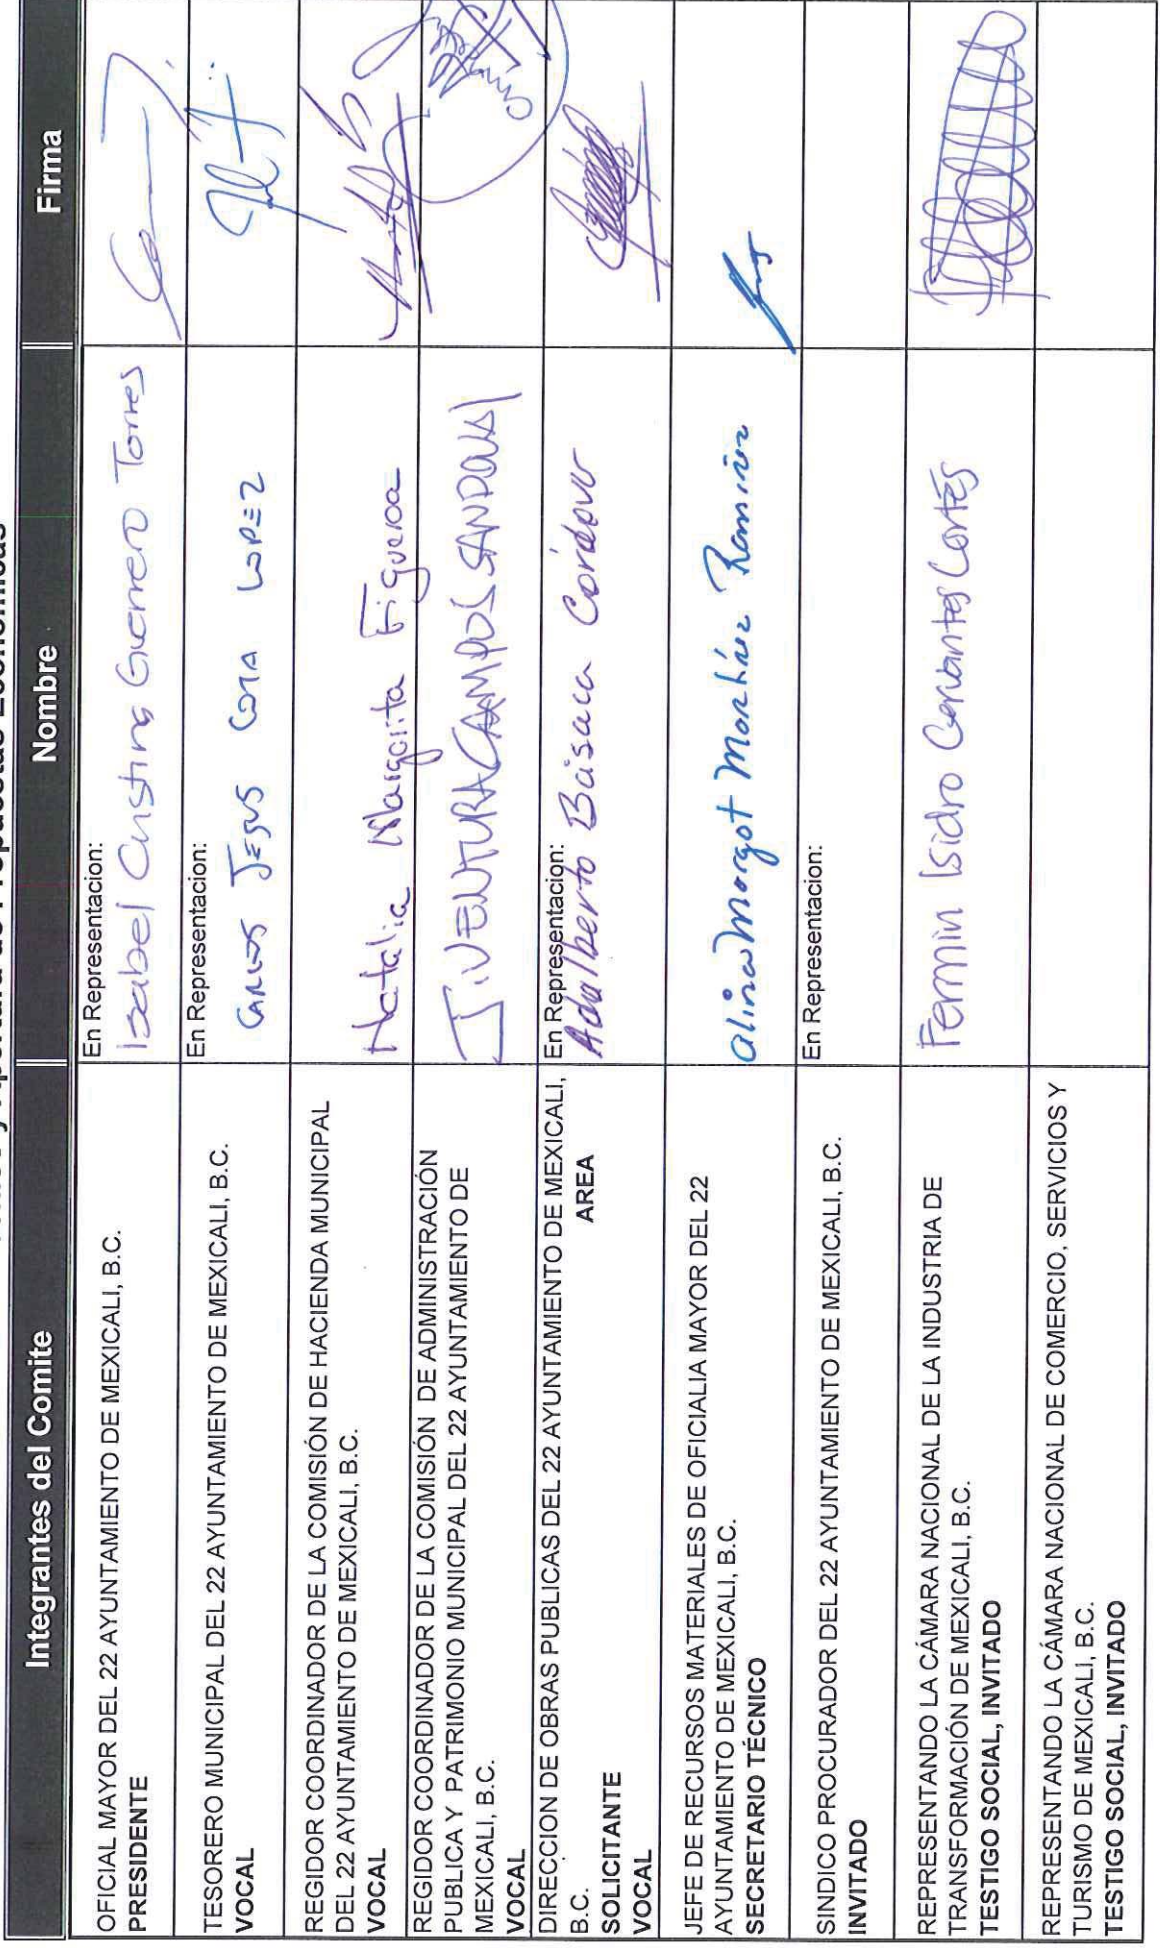 Integrantes del Comite Nombre Firma
OFICIAL MAYOR DEL 22 AYUNTAMIENTO DE MEXICALI, B.C.
PRESIDENTE
En Representacion:
Isabel Cristina Guerrero Torres
TESORERO MUNICIPAL DEL 22 AYUNTAMIENTO DE MEXICALI, B.C.
VOCAL
En Representacion:
CARLOS JESUS COTA LOPEZ
REGIDOR COORDINADOR DE LA COMISIÓN DE HACIENDA MUNICIPAL
DEL 22 AYUNTAMIENTO DE MEXICALI, B.C.
VOCAL
Natalia Margarita Figueroa
REGIDOR COORDINADOR DE LA COMISIÓN DE ADMINISTRACIÓN
PUBLICA Y PATRIMONIO MUNICIPAL DEL 22 AYUNTAMIENTO DE
MEXICALI, B.C.
VOCAL
CAMPOS SANDOVAL
DIRECCION DE OBRAS PUBLICAS DEL 22 AYUNTAMIENTO DE MEXICALI,
B.C. AREA
SOLICITANTE
VOCAL
En Representacion:
Adalberto Báisaca Córdova
JEFE DE RECURSOS MATERIALES DE OFICIALIA MAYOR DEL 22
AYUNTAMIENTO DE MEXICALI, B.C.
SECRETARIO TÉCNICO
Alina Margot Ramírez
SINDICO PROCURADOR DEL 22 AYUNTAMIENTO DE MEXICALI, B.C.
INVITADO
En Representacion:
REPRESENTANDO LA CÁMARA NACIONAL DE LA INDUSTRIA DE
TRANSFORMACIÓN DE MEXICALI, B.C.
TESTIGO SOCIAL, INVITADO
Fermin Isidro Cervantes Cortés
REPRESENTANDO LA CÁMARA NACIONAL DE COMERCIO, SERVICIOS Y
TURISMO DE MEXICALI, B.C.
TESTIGO SOCIAL, INVITADO